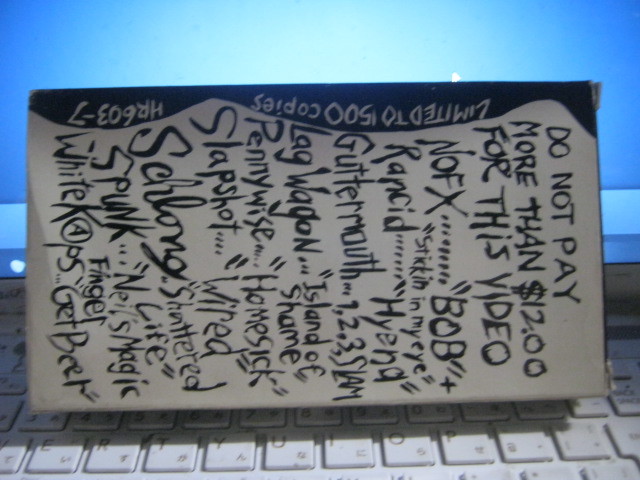 DO NOT PAY
MORE THAN $12.00
FOR THIS VIDEO
NOFX........"BOB"+
"Stickin in my eye"
Rancid......."Hyena"
Guttermouth...1,2,3,SLAM
Lag Wagon..."Island of
Shame"
Pennywise....."Homesick"
Slapshot....."Wired
Schlong.."Shattered
Life"
SPUNK..."Nel's Magic
Finger
WhiteKⒶps.."Get Beer"
LIMITED TO 1500 COPIES
HR603-7
E R T Y U I O P